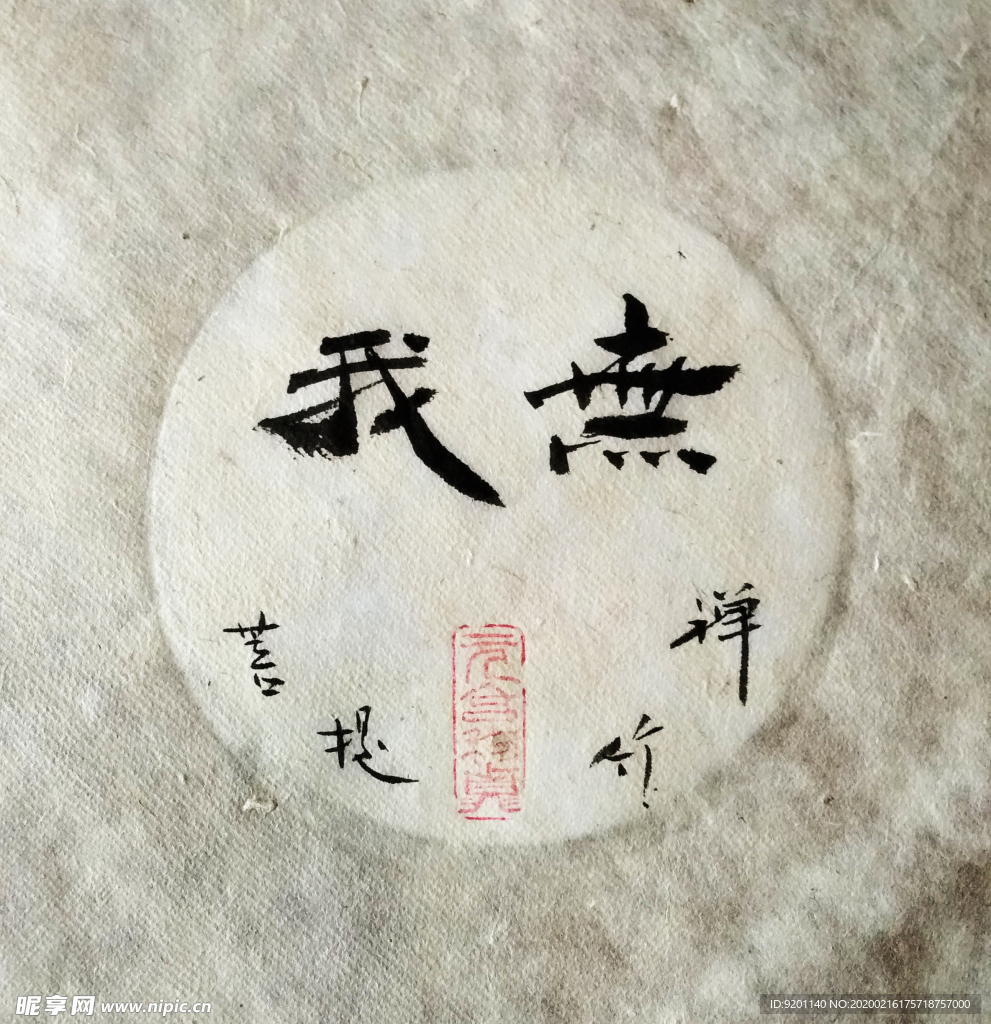 無我
禅竹
菩提
昵享网 www.nipic.cn
ID:9201140 NO:20200216175718757000